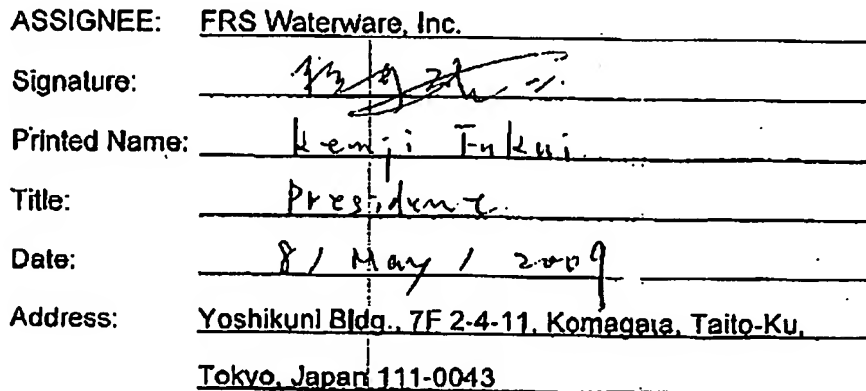 ASSIGNEE: FRS Waterware, Inc.
Signature:
Printed Name: Kenji Fukui
Title: President
Date: 8 / May / 2009
Address: Yoshikuni Bldg., 7F 2-4-11, Komagata, Taito-Ku,
Tokyo, Japan 111-0043